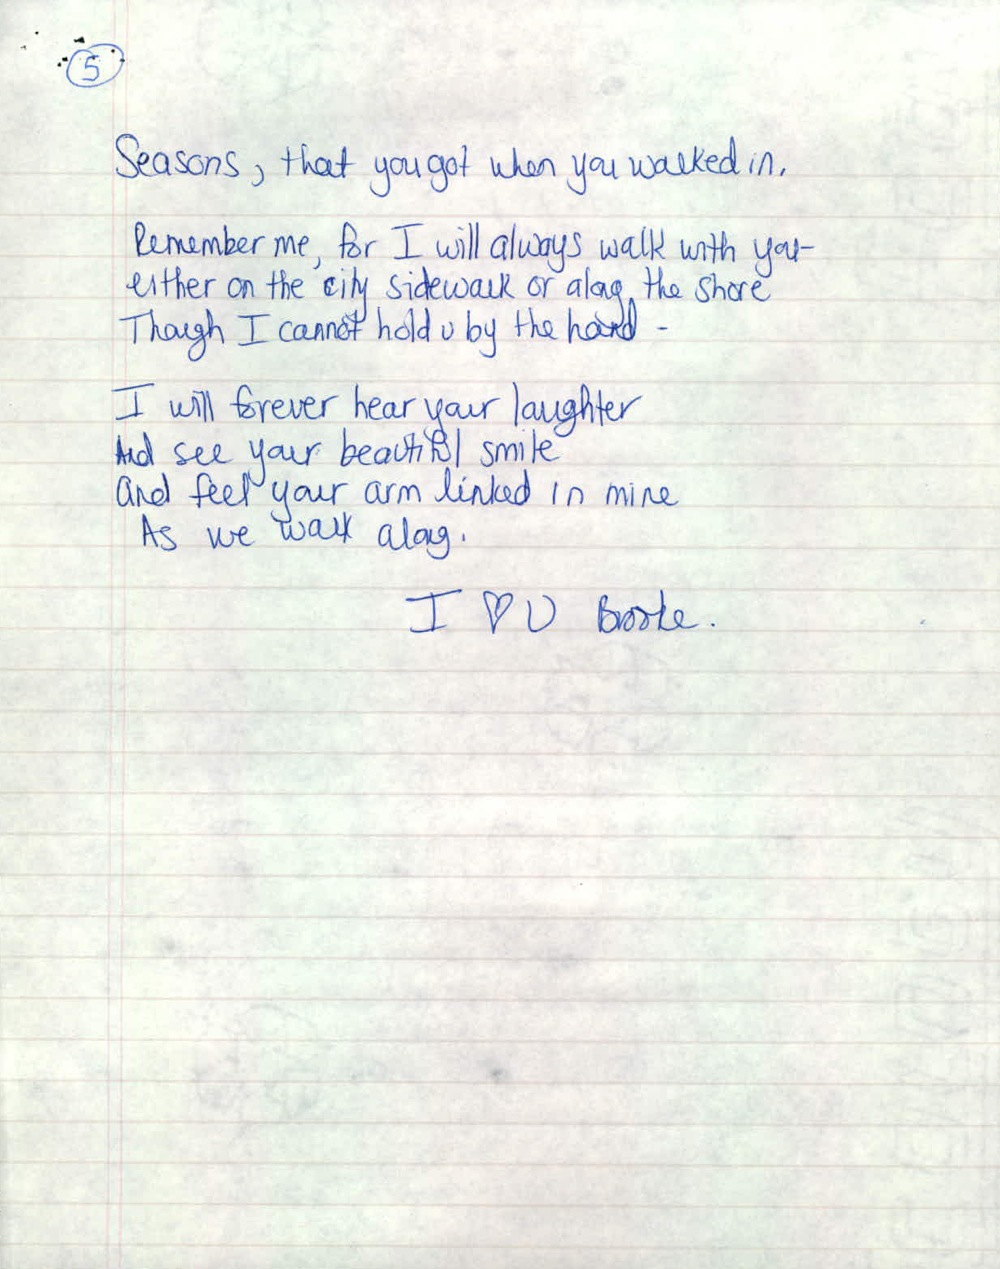 5
Seasons, that you got when you walked in.
Remember me, for I will always walk with you-
either on the city sidewalk or along the shore
Though I cannot hold u by the hand -
I will forever hear your laughter
And see your beautiful smile
and feel your arm linked in mine
As we walk along.
I ♡ U Brooke.